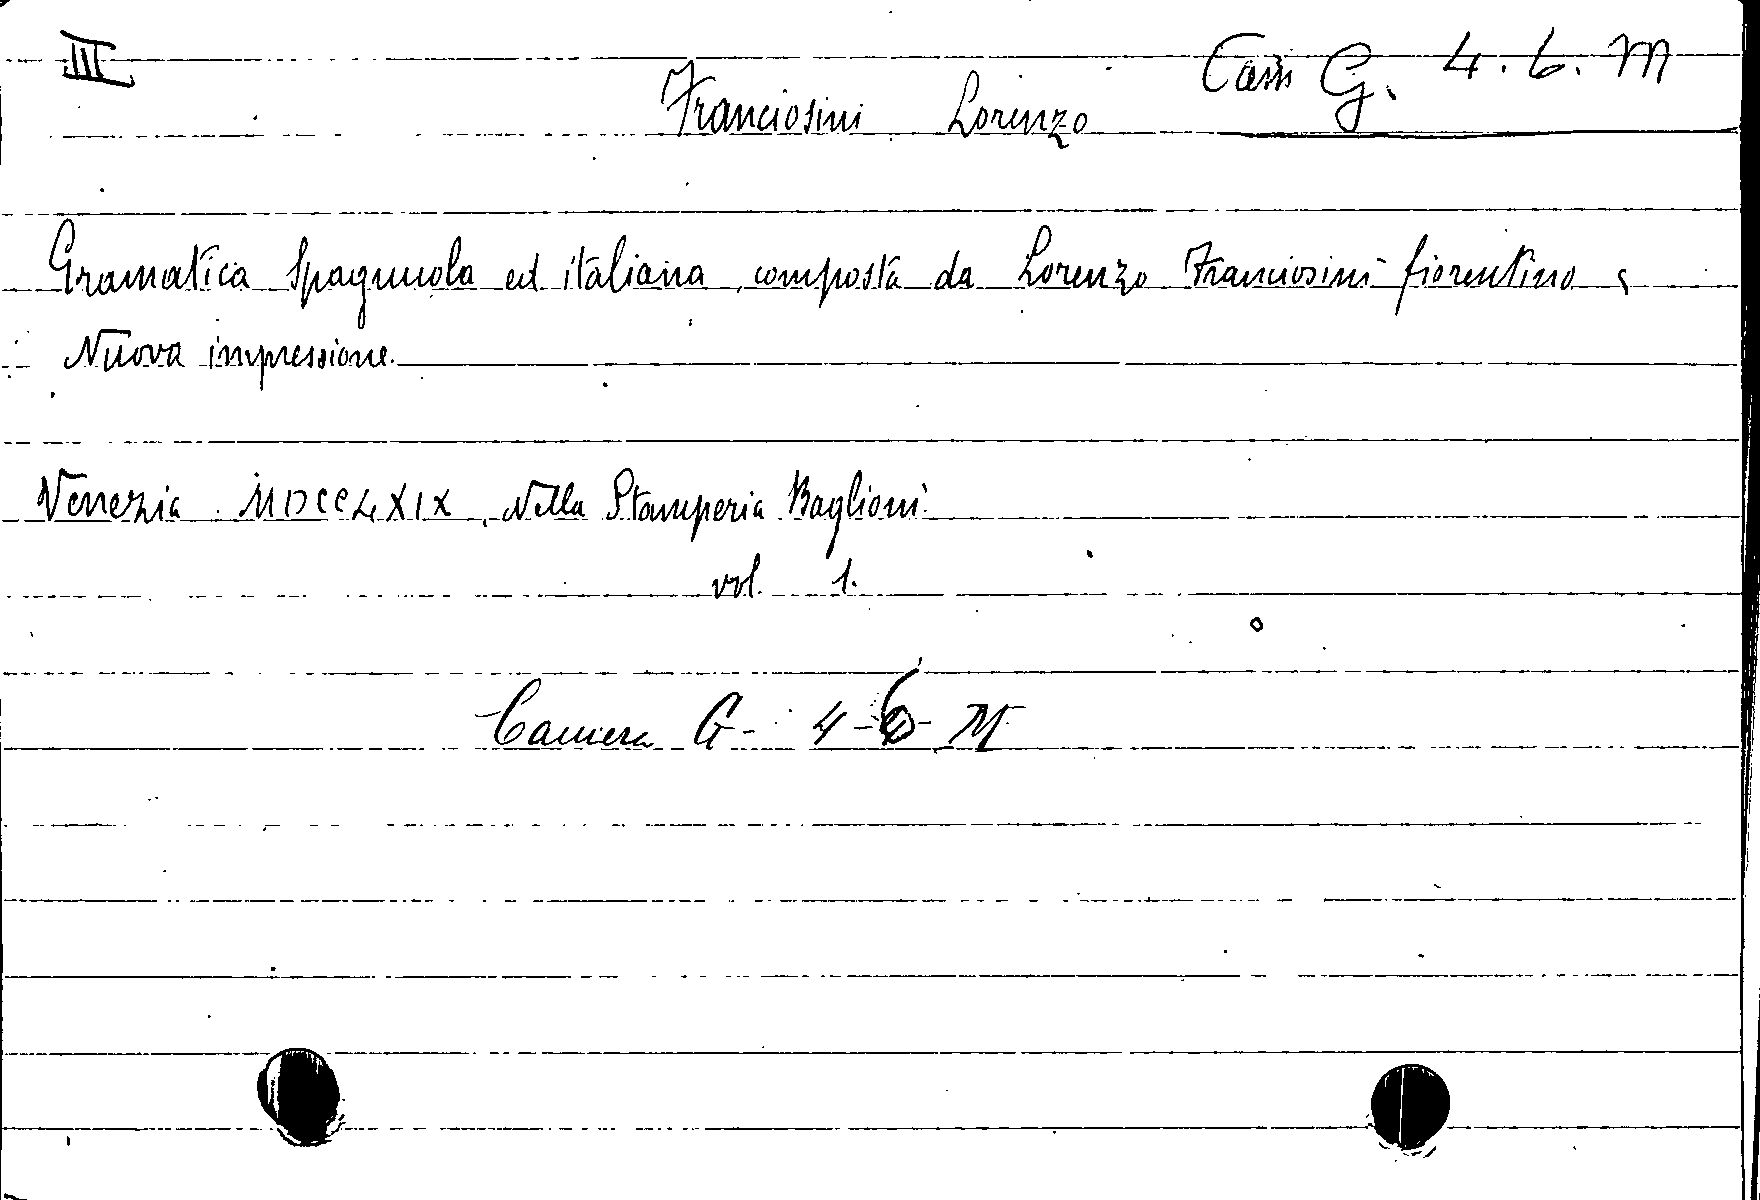 III
Cam G. 4. 6. M
Franciosini Lorenzo
Gramatica Spagnuola ed italiana, composta da Lorenzo Franciosini fiorentino,
Nuova impressione.
Venezia. MDCCLXIX, Nella Stamperia Baglioni.
vol. 1.
Camera G- 4-6-M